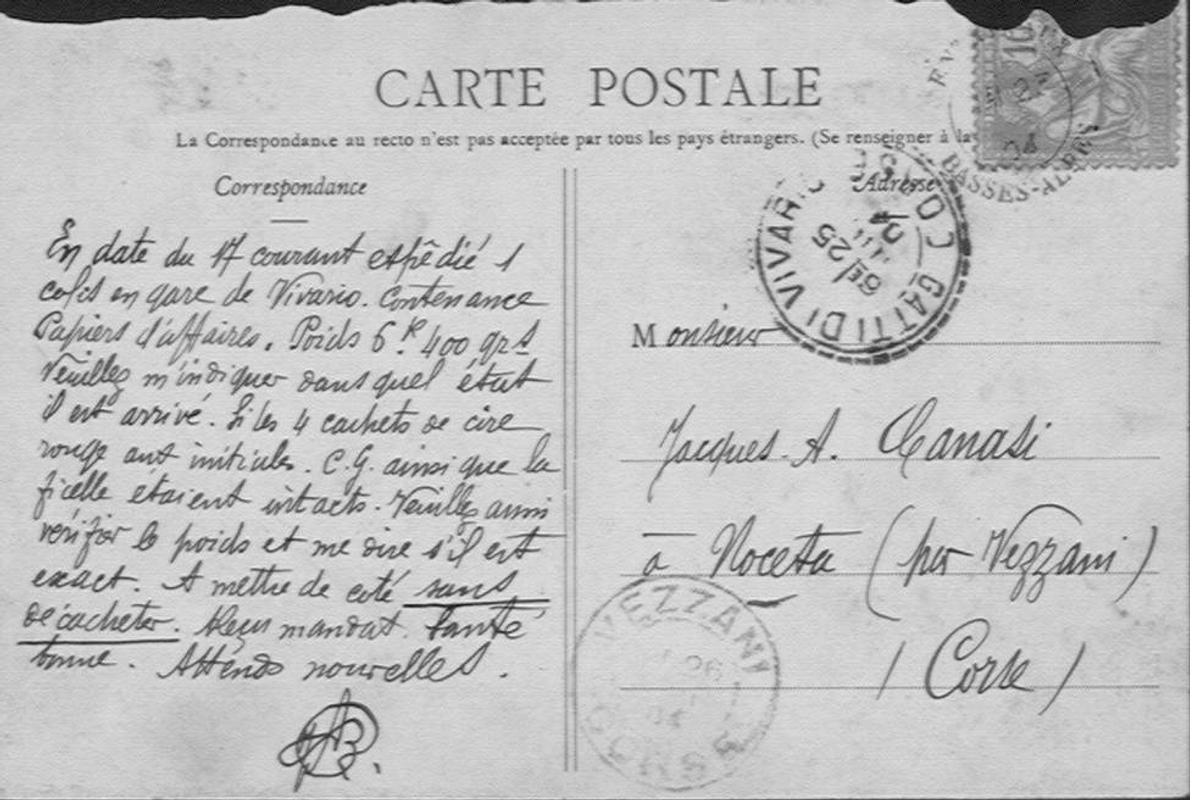 CARTE POSTALE
La Correspondance au recto n'est pas acceptée par tous les pays étrangers. (Se renseigner à la
Correspondance
Adresse
En date du 17 courant expédié 1
colis en gare de Vivario. Contenance
Papiers d'affaires. Poids 6.k 400 grs
Veuillez m'indiquer dans quel état
il est arrivé. Si les 4 cachets de cire
rouge aux initiales. C.G. ainsi que la
ficelle étaient intacts. Veuillez aussi
vérifier le poids et me dire s'il est
exact. A mettre de coté sans
décacheter. Reçu mandat. Santé
bonne. Attends nouvelles.
Monsieur
Jacques. A. Canasi
à Noceta (per Vezzani)
(Corse)
GATTI DI VIVARIO
CORSE
6E
25
04
VEZZANI
26
04
CORSE
10
04
BASSES-ALPES